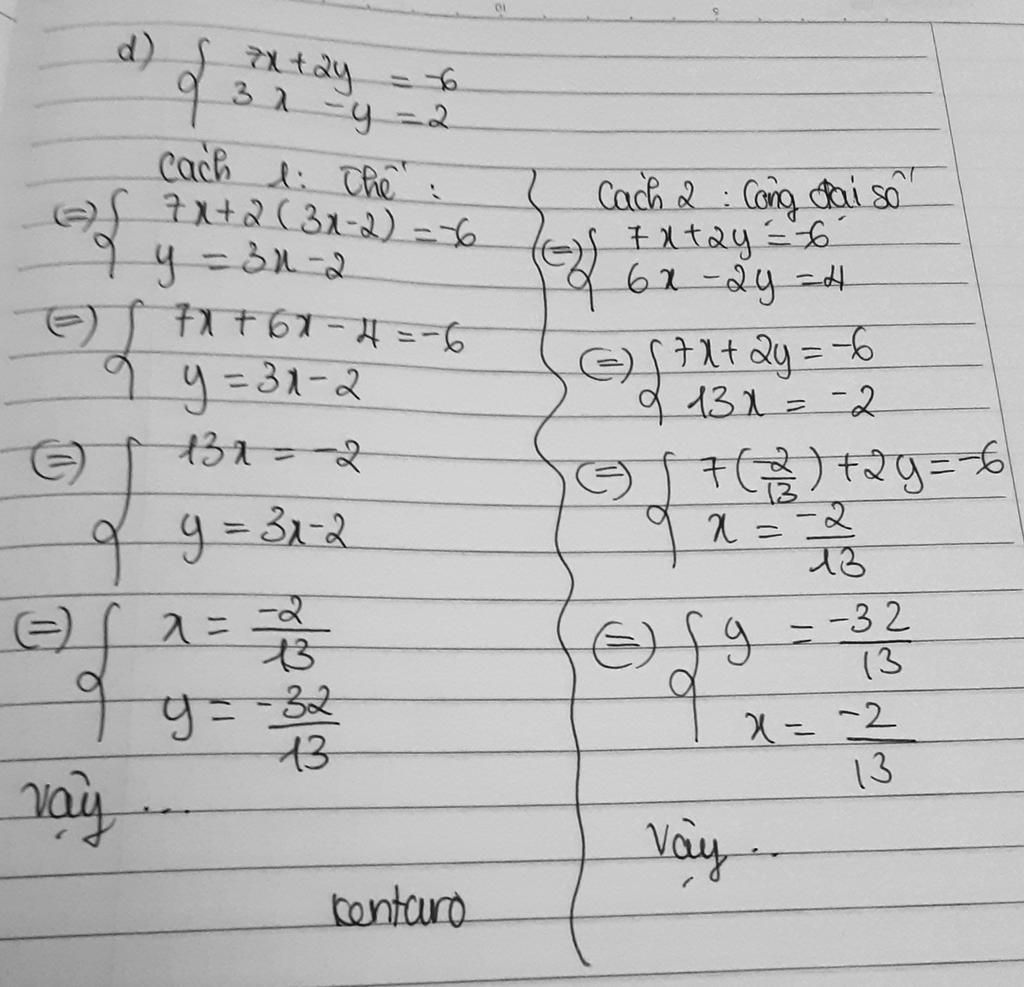 d) { 7x + 2y = -6
3x - y = 2
Cách 1: Thế :
(=) { 7x + 2(3x-2) = -6
y = 3x - 2
(=) { 7x + 6x - 4 = -6
y = 3x - 2
(=) { 13x = -2
y = 3x - 2
(=) { x = -2/13
y = -32/13
Vậy ...
kentaro
Cách 2 : Cộng đại số
(=) { 7x + 2y = -6
6x - 2y = 4
(=) { 7x + 2y = -6
13x = -2
(=) { 7(-2/13) + 2y = -6
x = -2/13
(=) { y = -32/13
x = -2/13
Vậy ..